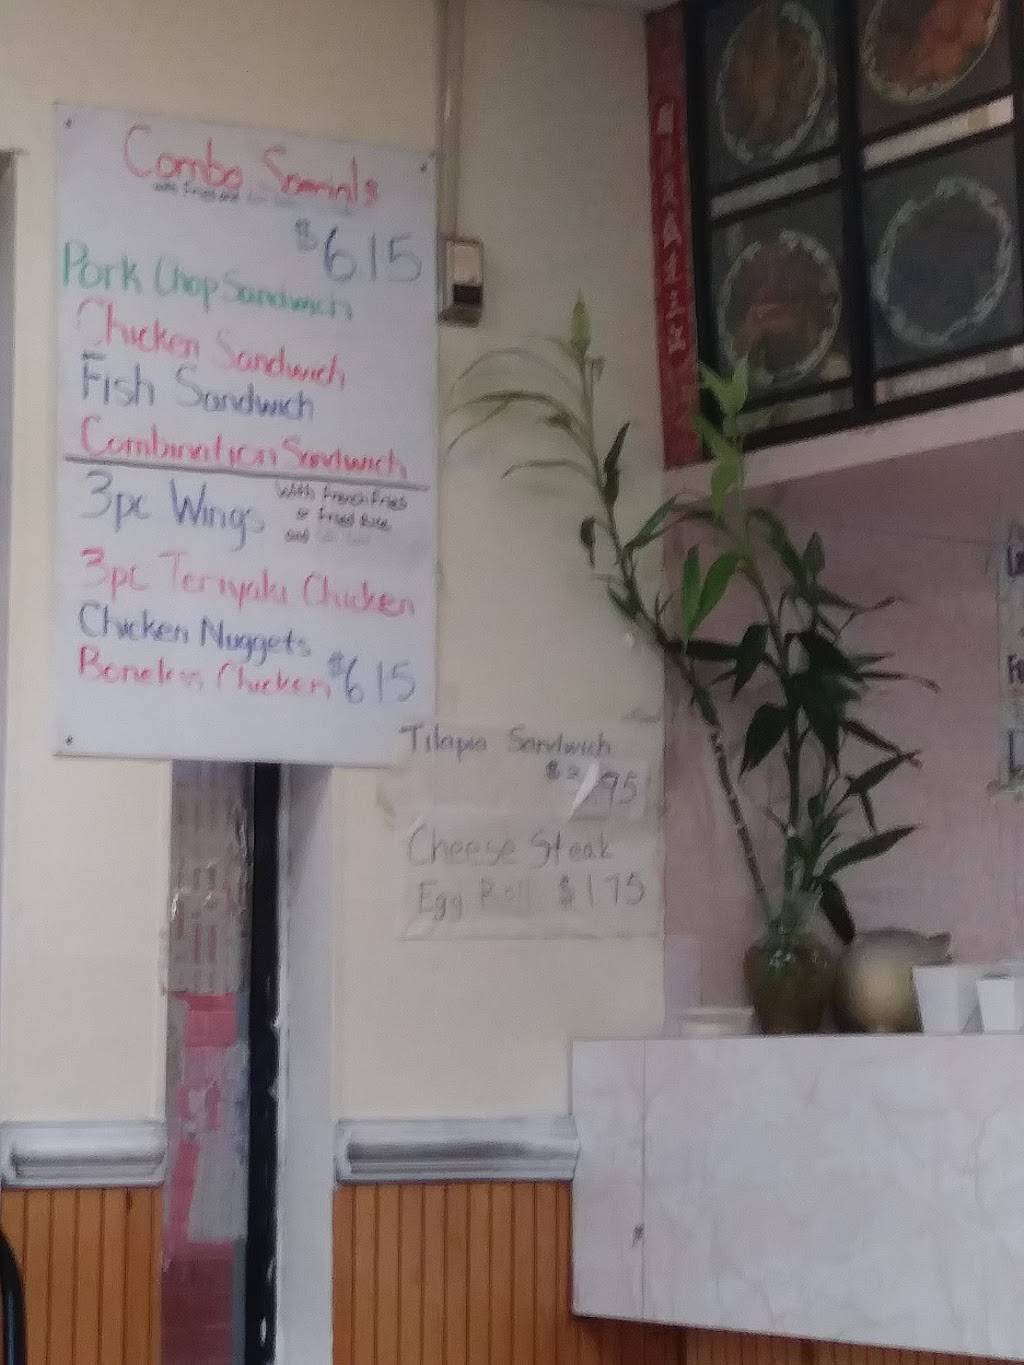 Combo Specials
$615
Pork Chop Sandwich
Chicken Sandwich
Fish Sandwich
Combination Sandwich
3pc Wings
With French Fries
or Fried Rice
and
3pc Teriyaki Chicken
Chicken Nuggets
Boneless Chicken $615
Tilapia Sandwich
95
Cheese Steak
Egg Roll $175